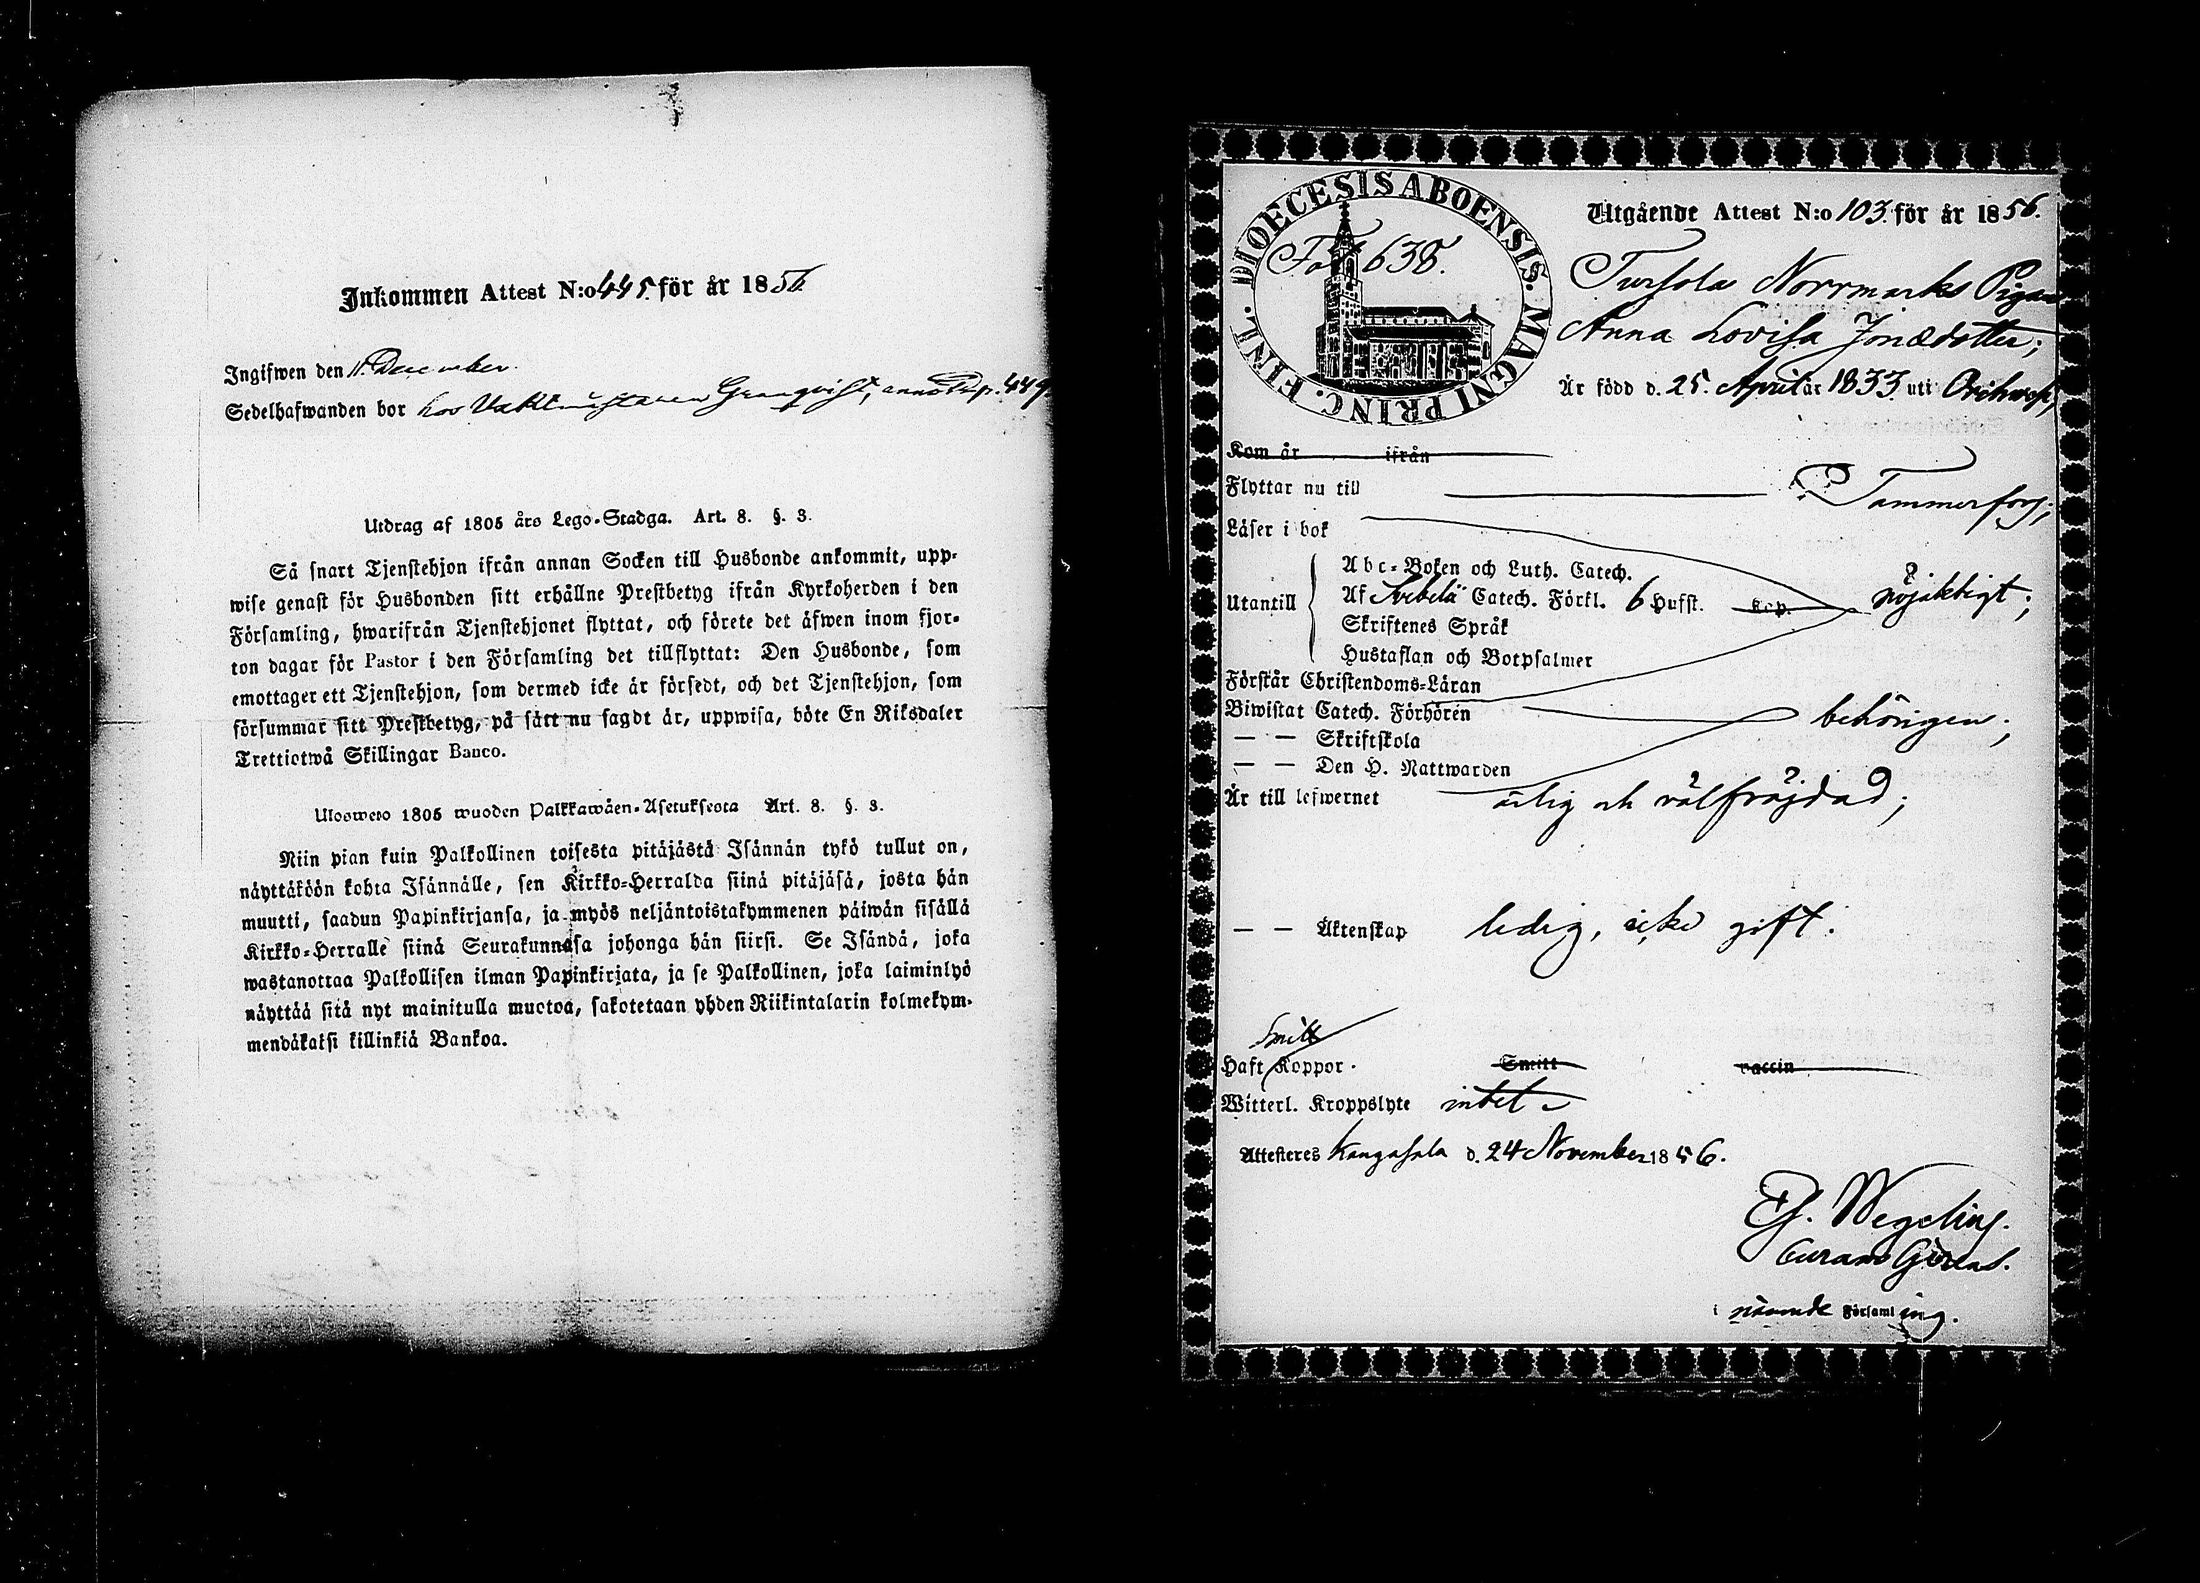 Inkommen Attest N:o 445. för år 1856
Ingifwen den 11. December.
Sedelhafwanden bor hos Vaktmästaren Granqvist, anno Pag. 449.
Utdrag af 1805 års Lego-Stadga. Art. 8. §. 3.
Så snart Tjenstehjon ifrån annan Socken till Husbonde ankommit, upp-
wise genast för Husbonden sitt erhållne Prestbetyg ifrån Kyrkoherden i den
Församling, hwarifrån Tjenstehjonet flyttat, och förete det äfwen inom fjor-
ton dagar för Pastor i den Församling det tillflyttat: Den Husbonde, som
emottager ett Tjenstehjon, som dermed icke är försedt, och det Tjenstehjon, som
försummar sitt Prestbetyg, på sätt nu sagdt är, uppwisa, böte En Riksdaler
Trettiotwå Skillingar Banco.
Ulosweto 1805 wuoden Palkkawäen-Asetuksesta Art. 8. §. 3.
Niin pian kuin Palkollinen toisesta pitäjästä Isännän tykö tullut on,
näyttäköön kohta Isännälle, sen Kirkko-Herralda siinä pitäjäsä, josta hän
muutti, saadun Papinkirjansa, ja myös neljäntoistakymmenen päiwän sisällä
Kirkko-Herralle siinä Seurakunnasa johonga hän siirsi. Se Isändä, joka
wastanottaa Palkollisen ilman Papinkirjata, ja se Palkollinen, joka laiminlyö
näyttää sitä nyt mainitulla muotoa, sakotetaan yhden Riikintalarin kolmekym-
mendäkaksi killinkiä Bankoa.
DIOECESIS ABOENSIS. MAGNI PRINC. FINL.
Fol 638.
Utgående Attest N:o 103. för år 1856.
Tursola Norrmarks Pigan
Anna Lovisa Jonædotter;
Är född d. 25. April år 1833. uti Orihvesi,
Kom år ifrån
Flyttar nu till Tammerfors;
Läser i bok
Abc-Boken och Luth. Catech.
Utantill Af Svebelii Catech. Förkl. 6 Hufst. Kap. nöjaktigt;
Skriftenes Språk
Hustaflan och Botpsalmer
Förstår Christendoms-Läran
Biwistat Catech. Förhören behörigen;
— — Skriftskola
— — Den H. Nattwarden
Är till lefwernet ärlig och välfräjdad;
— — Äktenskap ledig, icke gift.
Smitt
Haft Koppor. Smitt vaccin
Witterl. Kroppslyte intet
Attesteres Kangasala d. 24 November 1856.
Ef. Wegelius.
Curam Gerens.
i nämnde Församling.